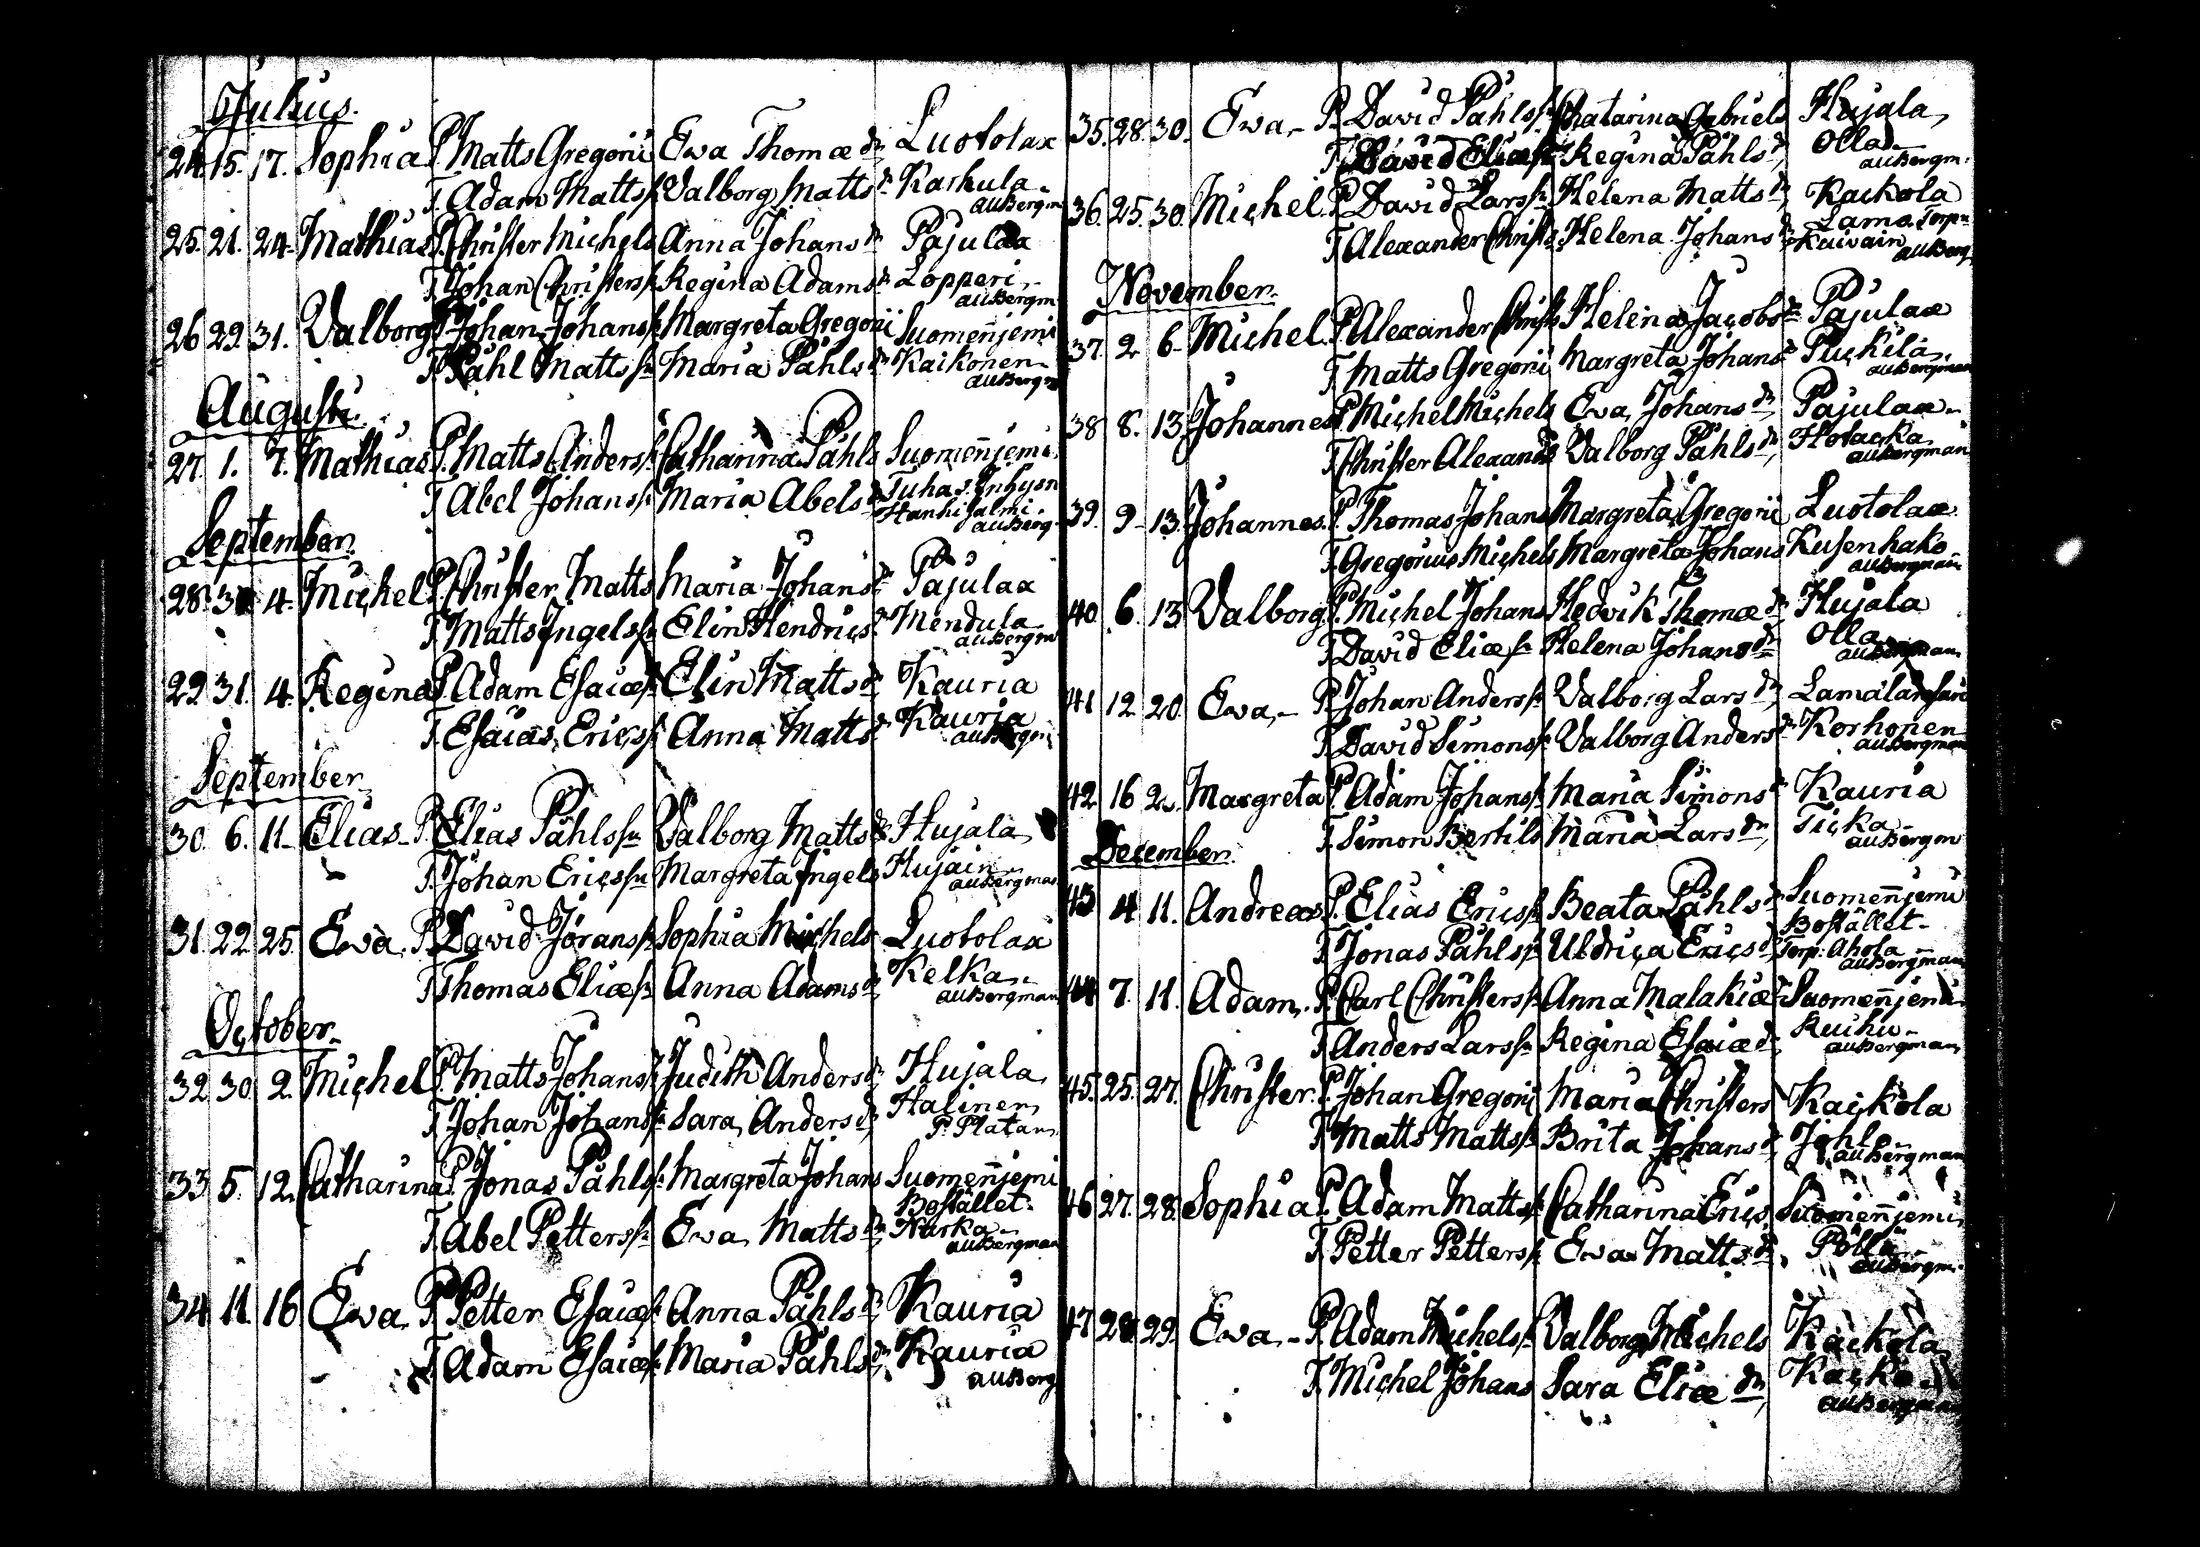 Julius.
24. 15. 17. Sophia P. Matts Gregorii Ewa Thomæ dr, Luotolax
T. Adam Mattss: Valborg Mattsdr Karkula. auBergm
25. 21. 24. Mathias P. Christer Michels Anna Johansdr Pajulax
T. Johan Christerss: Regina Adamsdr Lopperi, auBergm
26 29 31. Valborg P. Johan Johanss: Margreta Gregorii Suomenjemi
T. Påhl Mattssn Maria Påhlsdr Kaikonen auBergm
Augusti.
27. 1. 7. Mathias P. Matts Anderss: Catharina Påhls Suomenjemi
T Abel Johanss: Maria Abelsdr Tuhas: Inhysn Hanhisalmi auBerg
September
28. 3 4. Michel P. Christer Matts Maria Johansdr Pajulax
T. Matts Ingelssn Elin Hendricsdr Mendula auBergm
29 31. 4. Regina P. Adam Esaiæs: Elin Mattsdr Kauria
T. Esaias Ericss: Anna Mattsdr Kauria auBergm
September
30. 6. 11. Elias P. Elias Påhlssn Valborg Mattsdr Hujala,
T. Johan Ericssn Margreta Ingels Hujain auBergman
31. 22. 25. Ewa P. David Jöranss: Sophia Michels Luotolax
T Thomas Eliæs: Anna Adamsdr Kelka auBergman
October.
32 30 2. Michel P. Matts Johanss: Judith Andersdr Hujala,
T. Johan Johanss: Sara Andersdr Halinen P. Platan
33 5. 12. Catharina P. Jonas Påhlss: Margreta Johans Suomenjemi Bostället.
T. Abel Petterss: Ewa Mattsdr, Narka auBergman
34 11. 16 Ewa P. Petter Esaiæs: Anna Påhlsdr Kauria
T. Adam Esaiæs: Maria Påhlsdr, Kauria auBerg
35. 28. 30. Ewa P. David Påhlss: Chatarina Gabriels Hujala,
T. David Eliæs: Regina Påhlsdr, Olla auBergm.
36. 25. 30. Michel P. David Larss: Helena Mattsdr, Kackola Lama. Torp
T. Alexander Christ: Helena Johansdr Kaivain auBerg
November
37. 2 6. Michel P. Alexander Christs Helena Jacobsdr Pajulax
T Matts Gregorii Margreta Johansdr Puckila auBergman
38 8. 13 Johannes P. Michel Michels Ewa Johansdr, Pajulax
T. Christer Alexand Valborg Påhlsdr, Holacka auBergman
39. 9. 13 Johannes P. Thomas Johans Margreta Gregorii Luotolax
T. Gregorius Michels Margreta Johans Kusenhako auBergman
40. 6. 13 Valborg P. Michel Johans Hedvik Thomædr Hujala
T. David Eliæs: Helena Johansdr Olla auBergman
41 12 20. Ewa, P. Johan Anderss: Valborg Larsdr, Lamalansari
T. David Simonss: Valborg Andersdr Korhonen auBergman
42. 16 2. Margreta P. Adam Johanss: Maria Simonsdr Kauria
T. Simon Bertils Maria Larsdr, Ticka auBergm
December
43 4 11. Andreas P. Elias Ericss: Beata Påhlsdr Suomenjemi Bostället
T. Jonas Påhlss: Uldrica Ericsdr Torp: Ahola auBergman
44 7. 11. Adam, P. Carl Christerss: Anna Malakiædr Suomenjemi
T. Anders Larssn Regina Esaiædr, Kuihu auBergman
45. 25. 27. Christer. P. Johan Gregorii Maria Christers Kackola
T. Matts Mattss: Brita Johansdr, Johl auBergman
46 27. 28. Sophia P. Adam Mattss: Catharina Erics Suomenjemi
T. Petter Petterss: Ewa Mattsdr, Pöllä auBergm
47 28. 29. Ewa - P. Adam Michelss: Valborg Michels Kackola,
T. Michel Johans Sara Eliæ dr, Kacko auBergman